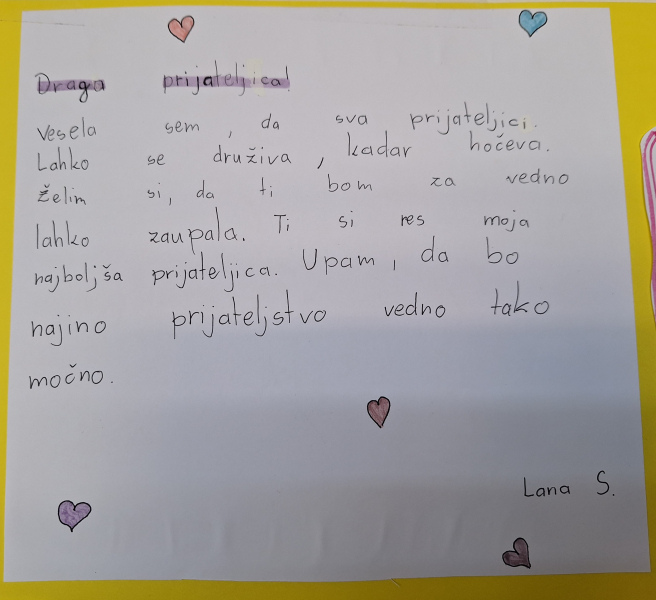 Draga prijateljica!
Vesela sem, da sva prijateljici.
Lahko se druživa, kadar hočeva.
Želim si, da ti bom za vedno
lahko zaupala. Ti si res moja
najboljša prijateljica. Upam, da bo
najino prijateljstvo vedno tako
močno.
Lana S.